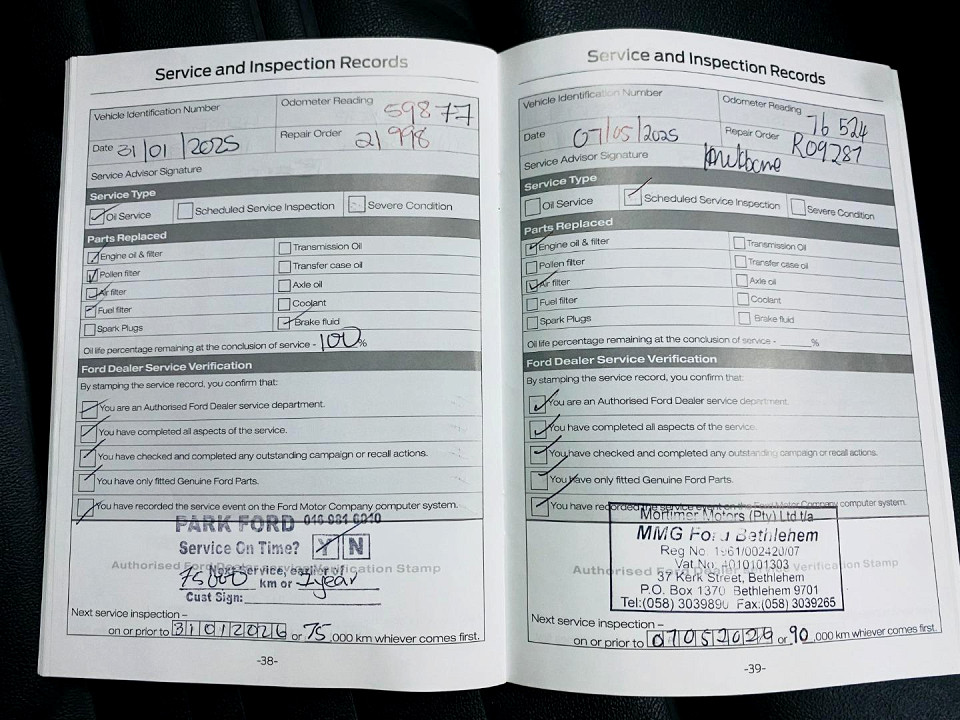 Service and Inspection Records
Vehicle Identification Number
Odometer Reading 59877
Date 31/01/2025
Repair Order 21998
Service Advisor Signature
Service Type
Oil Service Scheduled Service Inspection Severe Condition
Parts Replaced
Engine oil & filter Transmission Oil
Pollen filter Transfer case oil
Air filter Axle oil
Fuel filter Coolant
Spark Plugs Brake fluid
Oil life percentage remaining at the conclusion of service - 100%
Ford Dealer Service Verification
By stamping the service record, you confirm that:
You are an Authorised Ford Dealer service department.
You have completed all aspects of the service.
You have checked and completed any outstanding campaign or recall actions.
You have only fitted Genuine Ford Parts.
You have recorded the service event on the Ford Motor Company computer system.
PARK FORD
Service On Time? Y N
Authorised Ford Dealer Service Verification Stamp
Next Service, earlier of
75000 km or 1 year
Cust Sign:
Next service inspection –
on or prior to 31012026 or 75,000 km whiever comes first.
-38-
Service and Inspection Records
Vehicle Identification Number
Odometer Reading 76 524
Date 07/05/2025
Repair Order R09287
Service Advisor Signature
Service Type
Oil Service Scheduled Service Inspection Severe Condition
Parts Replaced
Engine oil & filter Transmission Oil
Pollen filter Transfer case oil
Air filter Axle oil
Fuel filter Coolant
Spark Plugs Brake fluid
Oil life percentage remaining at the conclusion of service - %
Ford Dealer Service Verification
By stamping the service record, you confirm that:
You are an Authorised Ford Dealer service department.
You have completed all aspects of the service.
You have checked and completed any outstanding campaign or recall actions.
You have only fitted Genuine Ford Parts.
You have recorded the service event on the Ford Motor Company computer system.
Mortimer Motors (Pty) Ltd t/a
MMG Ford Bethlehem
Reg No: 1961/002420/07
Vat No: 4010101303
Authorised Ford Dealer Service Verification Stamp
37 Kerk Street, Bethlehem
P.O. Box 1370 Bethlehem 9701
Tel:(058) 3039890 Fax:(058) 3039265
Next service inspection –
on or prior to 07052029 or 90,000 km whiever comes first.
-39-